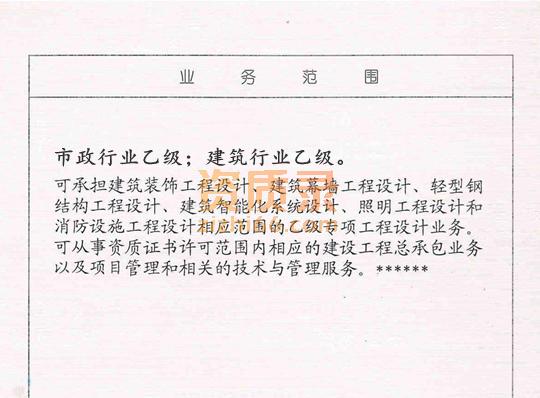 业务范围
市政行业乙级；建筑行业乙级。
可承担建筑装饰工程设计、建筑幕墙工程设计、轻型钢
结构工程设计、建筑智能化系统设计、照明工程设计和
消防设施工程设计相应范围的乙级专项工程设计业务。
可从事资质证书许可范围内相应的建设工程总承包业务
以及项目管理和相关的技术与管理服务。******
资质录